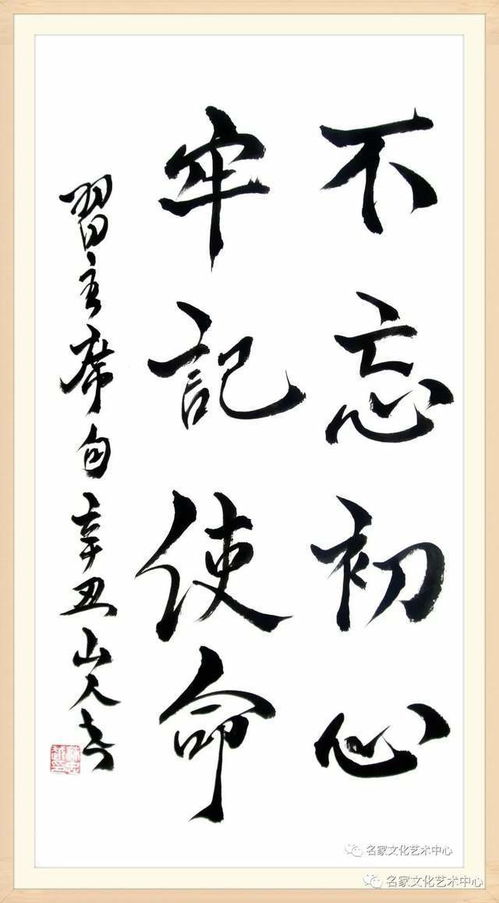 不忘初心
牢記使命
習主席句辛丑山人書
名家文化艺术中心
名家文化艺术中心